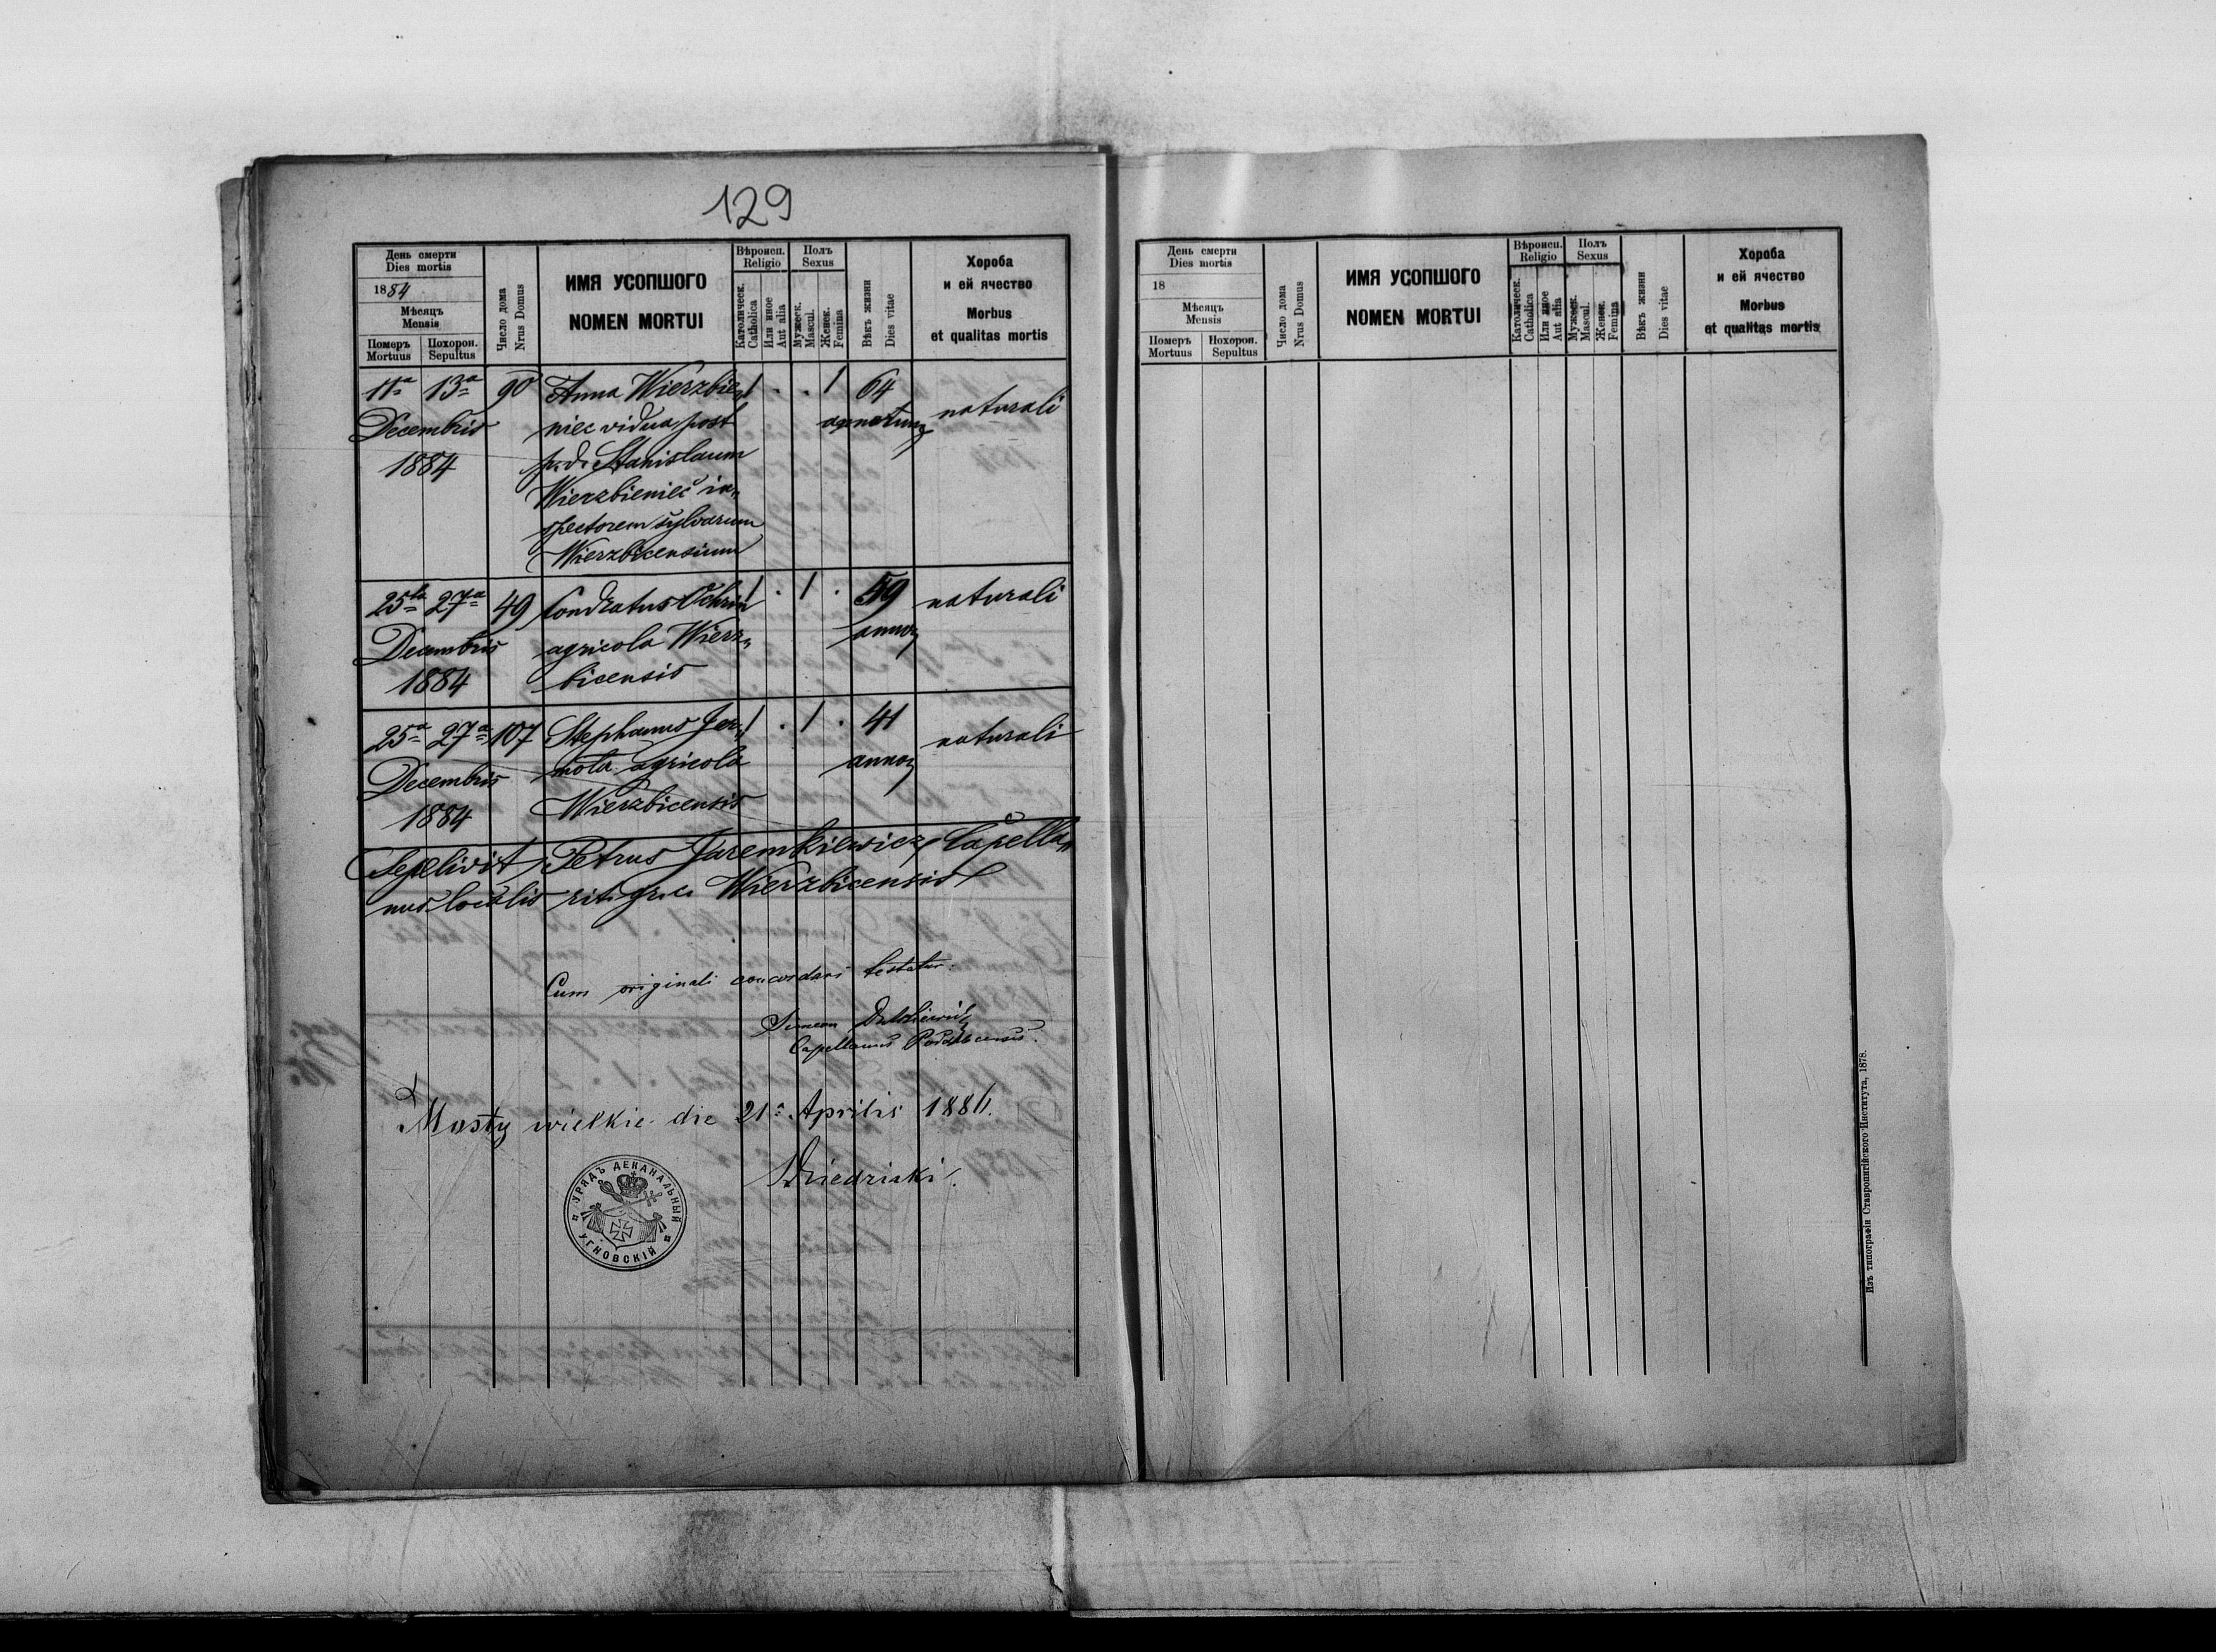 129
День смерти
Dies mortis
1884
Мѣсяцъ
Mensis
Померъ
Mortuus
Похорон.
Sepultus
Число дома
Nrus Domus
ИМЯ УСОПШОГО
NOMEN MORTUI
Вѣроисп.
Religio
Католическ.
Catholica
Или иное
Aut alia
Полъ
Sexus
Мужеск.
Mascul.
Женск.
Femina
Вѣкъ жизни
Dies vitae
Хороба
и ей ячество
Morbus
et qualitas mortis
11ª 13ª 90 Anna Wierzbie„ 1 . . 1 64 naturali
Decembris niec vidua post annorum
1884 p. d. Stanislaum
Wierzbieniec in„
spectorem sylvarum
Wierzbicensium
25ta 27ª 49 Condratus Ochrin 1 . 1 . 59 naturali
Decembris agricola Wierz„ annor
1884 bicensis
25ª 27ª 107 Stephanus Jer„ 1 . 1 . 41 naturali
Decembris mota agricola annor
1884 Wierzbicensis
Sepelivit Petrus Jaremkiewicz Capella„
nus localis rit. gr. c. Wierzbicensis
Cum originali concordari testatur.
Simeon
Capellanus
Mosty wielkie die 21ª Aprilis 188
Dziedzicki.
УРЯДЪ ДЕКАНАЛЬНЫЙ
УГНОВСКІЙ
День смерти
Dies mortis
18
Мѣсяцъ
Mensis
Померъ
Mortuus
Похорон.
Sepultus
Число дома
Nrus Domus
ИМЯ УСОПШОГО
NOMEN MORTUI
Вѣроисп.
Religio
Католическ.
Catholica
Или иное
Aut alia
Полъ
Sexus
Мужеск.
Mascul.
Женск.
Femina
Вѣкъ жизни
Dies vitae
Хороба
и ей ячество
Morbus
et qualitas mortis
Изъ типографіи Ставропигійского Института, 1878.